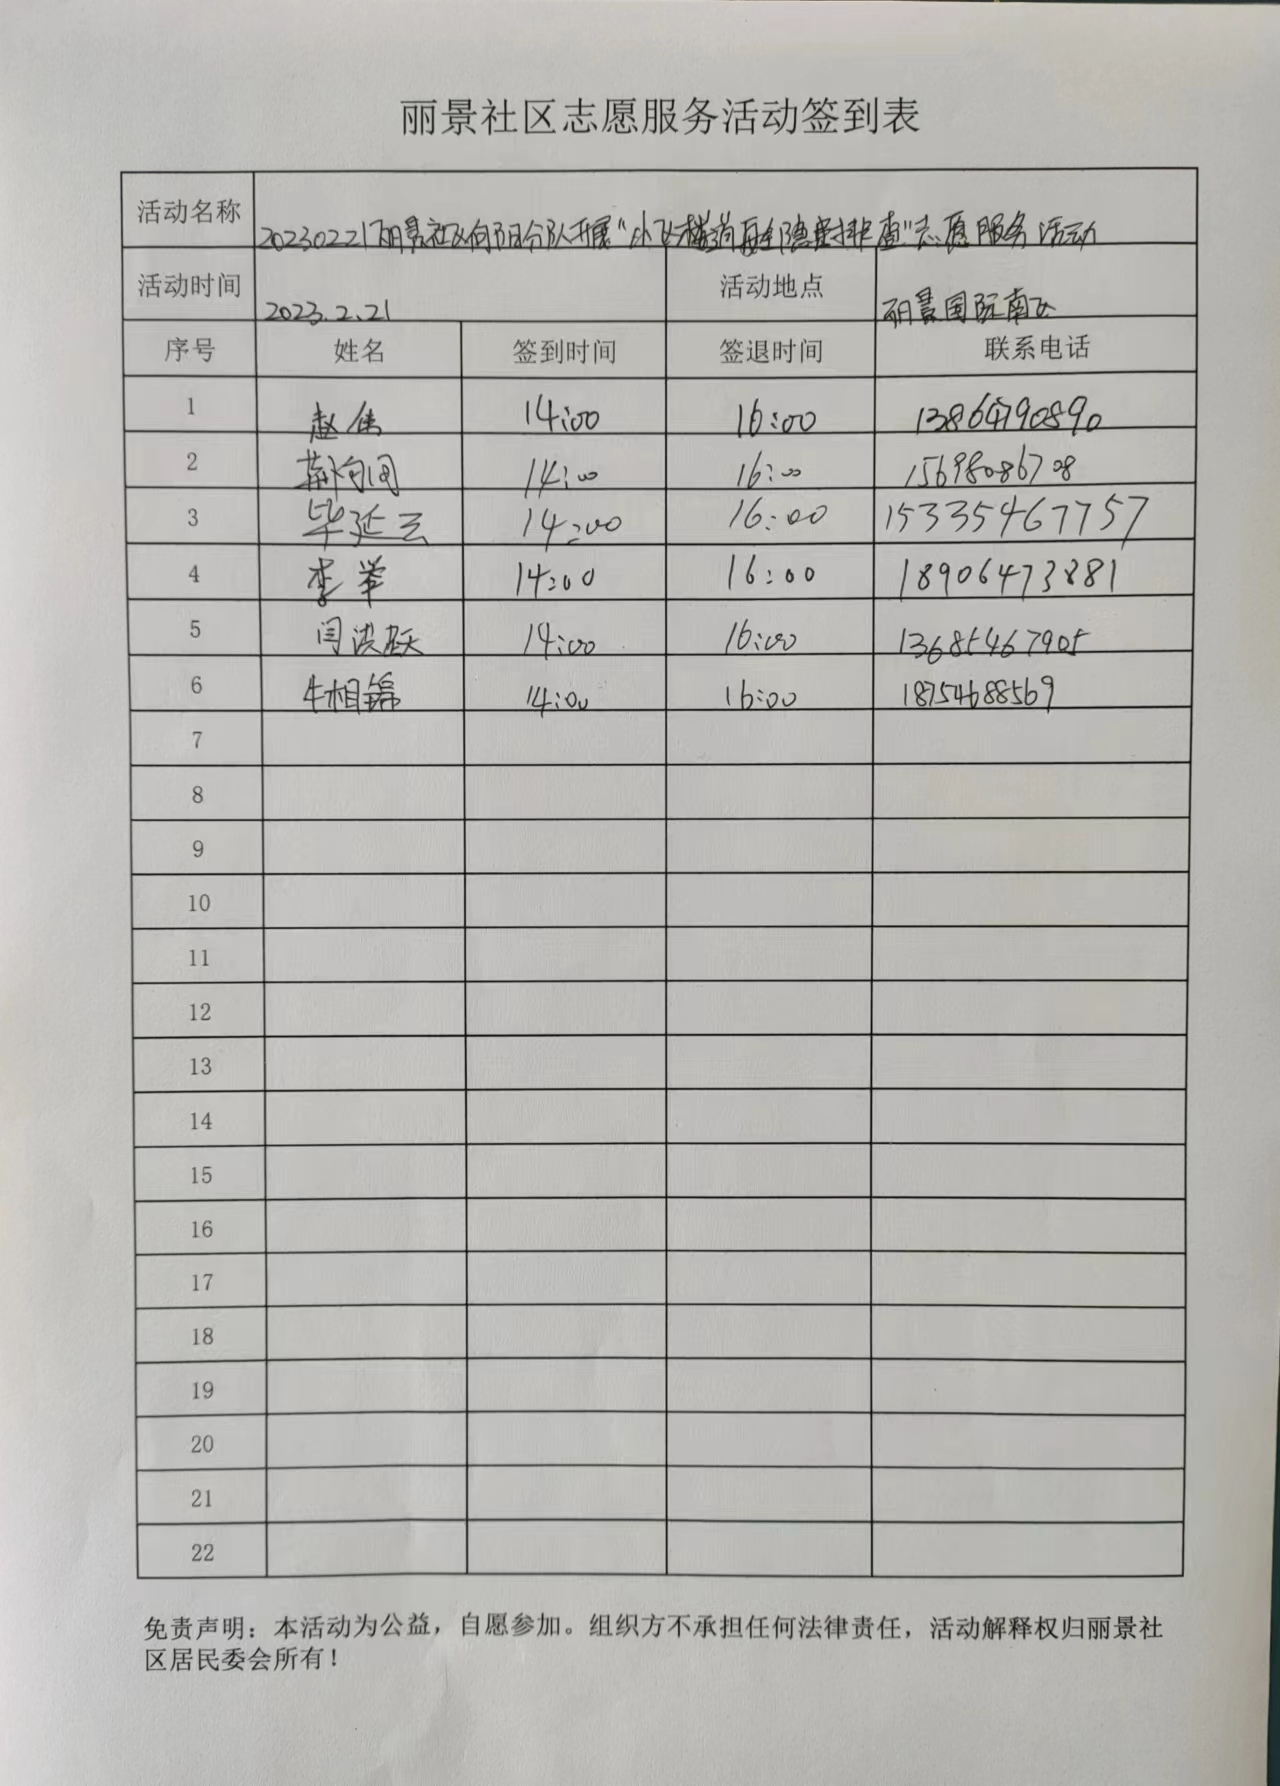 丽景社区志愿服务活动签到表
活动名称 20230221丽景社区向阳分队开展“小区楼道安全隐患排查”志愿服务活动
活动时间 2023.2.21 活动地点 丽景国际南区
序号 姓名 签到时间 签退时间 联系电话
1 赵倩 14:00 16:00
2 14:00 16:00 15698086708
3 毕延云 14:00 16:00 15335467757
4 李举 14:00 16:00 18906473881
5 闫洪跃 14:00 16:00 13685467905
6 牛相锦 14:00 16:00 18754688569
7
8
9
10
11
12
13
14
15
16
17
18
19
20
21
22
免责声明：本活动为公益，自愿参加。组织方不承担任何法律责任，活动解释权归丽景社
区居民委会所有！